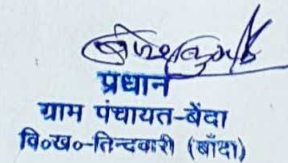 प्रधान
ग्राम पंचायत-बेंदा
वि०ख०-तिन्दवारी (बाँदा)